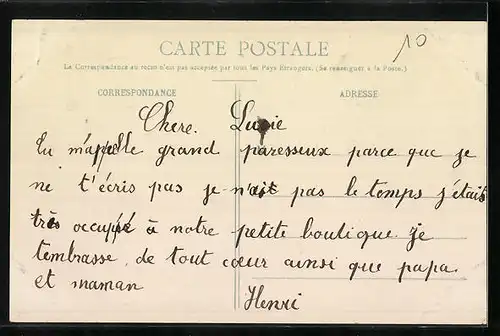 10
CARTE POSTALE
La Correspondance au recto n'est pas acceptée par tous les Pays Étrangers. (Se renseigner à la Poste.)
CORRESPONDANCE ADRESSE
Chere. Lucie
Tu m'appelle grand paresseux parce que je
ne t'écris pas je n'ait pas le temps j'étais
très occupé à notre petite boutique. Je
tembrasse de tout cœur ainsi que papa
et maman Henri